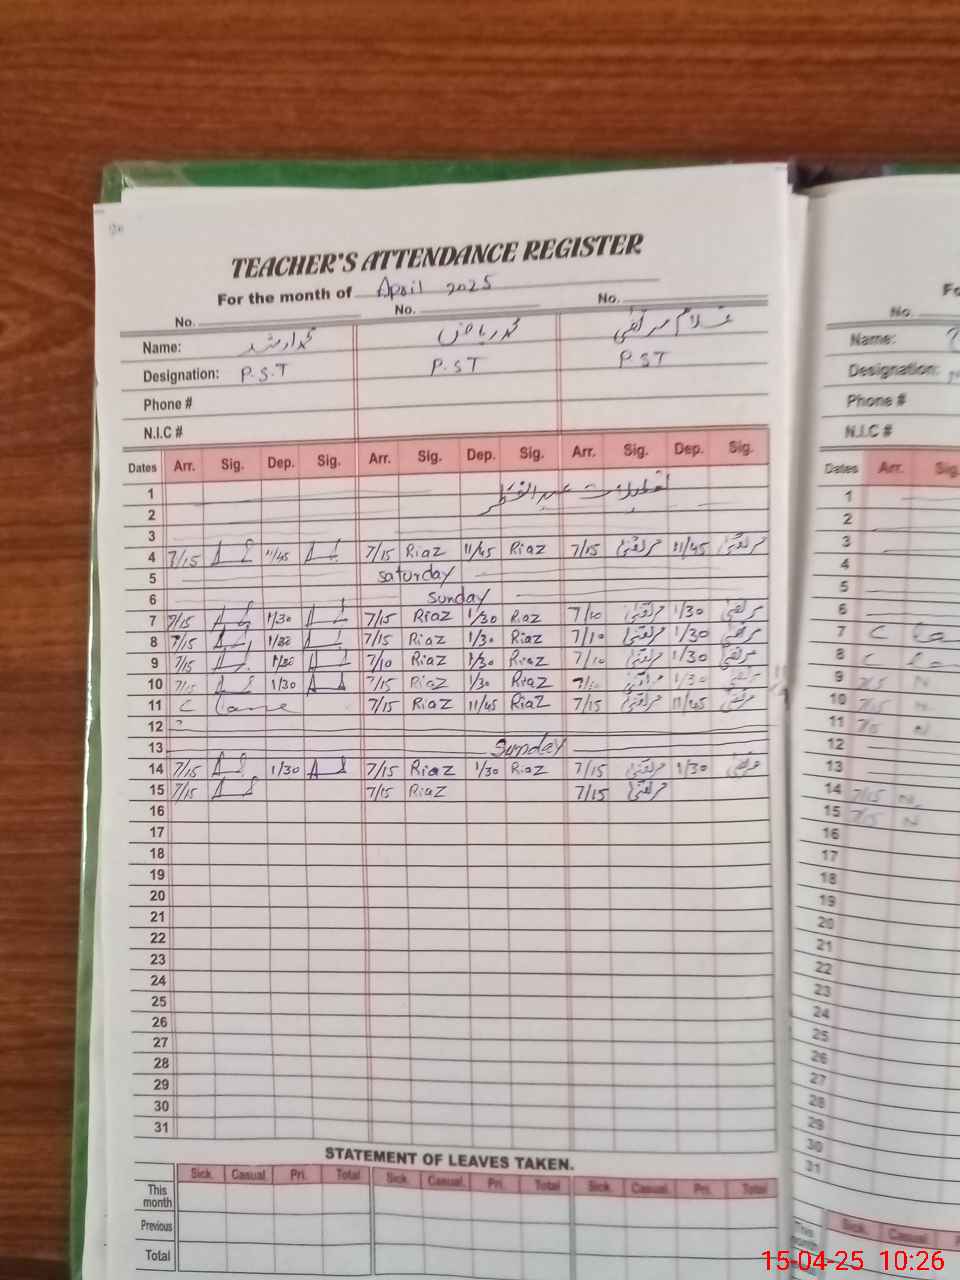 TEACHER'S ATTENDANCE REGISTER
For the month of April 2025
No. No. No.
Name: محمد ارشد محمد ریاض غلام مرتضیٰ
Designation: P.S.T P.ST P.ST
Phone #
N.I.C #
Dates Arr. Sig. Dep. Sig. Arr. Sig. Dep. Sig. Arr. Sig. Dep. Sig.
1 تعطیلات عید الفطر
2
3
4 7/15 11/45 7/15 Riaz 11/45 Riaz 7/15 مرتضیٰ 11/45 مرتضیٰ
5 Saturday
6 Sunday
7 7/15 1/30 7/15 Riaz 1/30 Riaz 7/10 مرتضیٰ 1/30 مرتضیٰ
8 7/15 1/30 7/15 Riaz 1/30 Riaz 7/10 مرتضیٰ 1/30 مرتضیٰ
9 7/15 1/30 7/10 Riaz 1/30 Riaz 7/10 مرتضیٰ 1/30 مرتضیٰ
10 7/15 1/30 7/15 Riaz 1/30 Riaz 7/10 مرتضیٰ 1/30 مرتضیٰ
11 C 7/15 Riaz 11/45 Riaz 7/15 مرتضیٰ 11/45 مرتضیٰ
12
13 Sunday
14 7/15 1/30 7/15 Riaz 1/30 Riaz 7/15 مرتضیٰ 1/30 مرتضیٰ
15 7/15 7/15 Riaz 7/15 مرتضیٰ
16
17
18
19
20
21
22
23
24
25
26
27
28
29
30
31
STATEMENT OF LEAVES TAKEN.
Sick. Casual. Pri. Total Sick. Casual. Pri. Total Sick. Casual. Pri. Total
This month
Previous
Total
No.
Name:
Designation:
Phone #
N.I.C #
Dates Arr. Sig.
1
2
3
4
5
6
7 C
8 C
9 7/5 N
10 7/15 N
11 7/5 N
12
13
14 7/15 N
15 7/15 N
16
17
18
19
20
21
22
23
24
25
26
27
28
29
30
31
Sick. Casual
This month
15-04-25 10:26